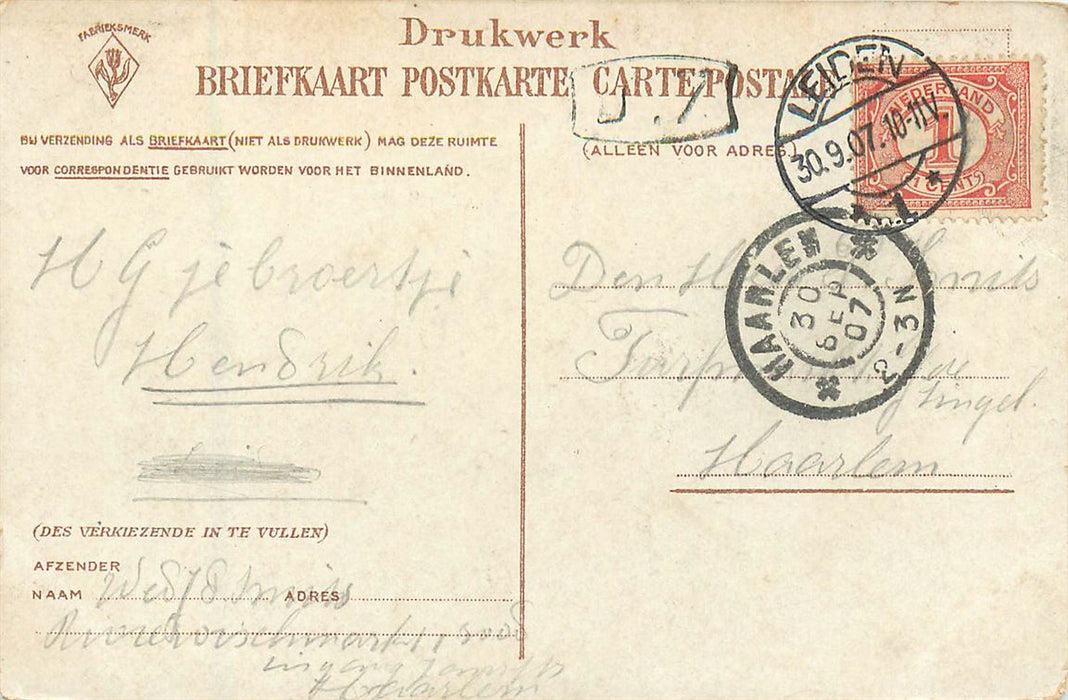 FABRIEKSMERK
Drukwerk
BRIEFKAART POSTKARTE CARTE POSTA
LEIDEN
30.9.07.10-11V.
1
NEDERLAND
1
CENT
BIJ VERZENDING ALS BRIEFKAART (NIET ALS DRUKWERK) MAG DEZE RUIMTE
VOOR CORRESPONDENTIE GEBRUIKT WORDEN VOOR HET BINNENLAND.
(ALLEEN VOOR ADRES.)
HAARLEM
30
SEP
07
2-3N
H G je broertje
Hendrik.
Den H Smits
Singel.
Haarlem
(DES VERKIEZENDE IN TE VULLEN)
AFZENDER
NAAM Wed Smits ADRES
Haarlem